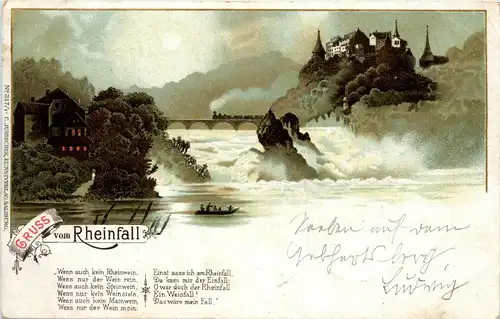 GRUSS
vom Rheinfall
„Wenn auch kein Rheinwein,
Wenn nur der Wein rein,
Wenn auch kein Steinwein,
Wenn nur kein Weinstein,
Wenn auch kein Mainwein,
Wenn nur der Wein mein.
Einst sass ich am Rheinfall,
Da kam mir der Einfall:
O wär doch der Rheinfall
Ein Weinfall!
Das wäre mein Fall."
Soeben auf dem
Ludwig